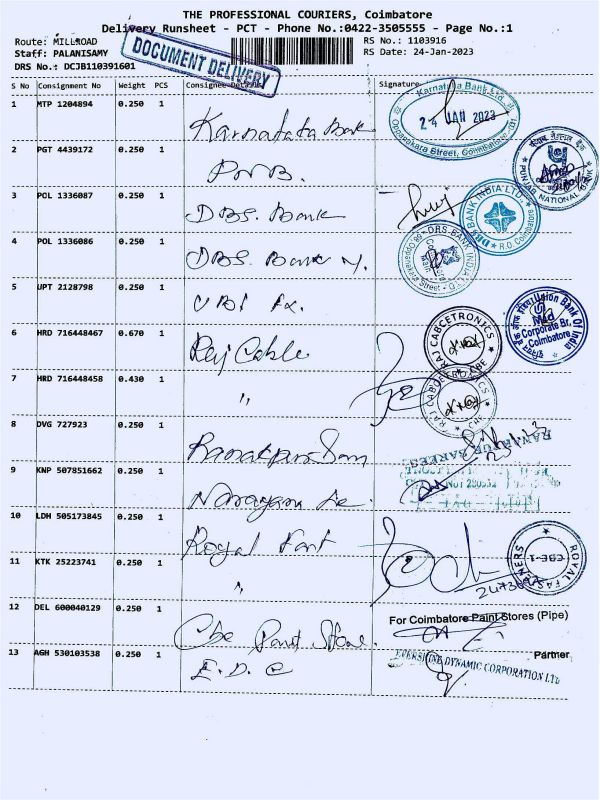 THE PROFESSIONAL COURIERS, Coimbatore
Delivery Runsheet - PCT - Phone No.:0422-3505555 - Page No.:1
Route: MILLROAD
RS No.: 1103916
Staff: PALANISAMY
RS Date: 24-Jan-2023
DRS No.: DCJB110391601
DOCUMENT DELIVERY
S No Consignment No Weight PCS Consignee Signature
1 MTP 1204894 0.250 1 Karnataka Bank
Karnataka Bank Ltd.
24 JAN 2023
Oppanakara Street, Coimbatore
2 PGT 4439172 0.250 1 PNB.
PUNJAB NATIONAL BANK
3 POL 1336087 0.250 1 DBS. Bank
DBS BANK INDIA LTD
R.O. Coimbatore
4 POL 1336086 0.250 1 DBS. Bank
5 UPT 2128798 0.250 1 UBI
Union Bank Of India
Mid Corporate Br,
Coimbatore
6 HRD 716448467 0.670 1 Raj Cable
RAJ CABCETRONICS
CBE
7 HRD 716448458 0.430 1 "
RAJ CABCETRONICS
CBE
8 DVG 727923 0.250 1
9 KNP 507851662 0.250 1 Narayana
10 LDH 505173845 0.250 1 Royal Fast
ROYAL FASTNERS
CBE-1
11 KTK 25223741 0.250 1 "
12 DEL 600040129 0.250 1 Cbe Paint Store.
For Coimbatore Paint Stores (Pipe)
Partner
13 AGH 530103538 0.250 1 E.D.C
EVERSHINE DYNAMIC CORPORATION LTD